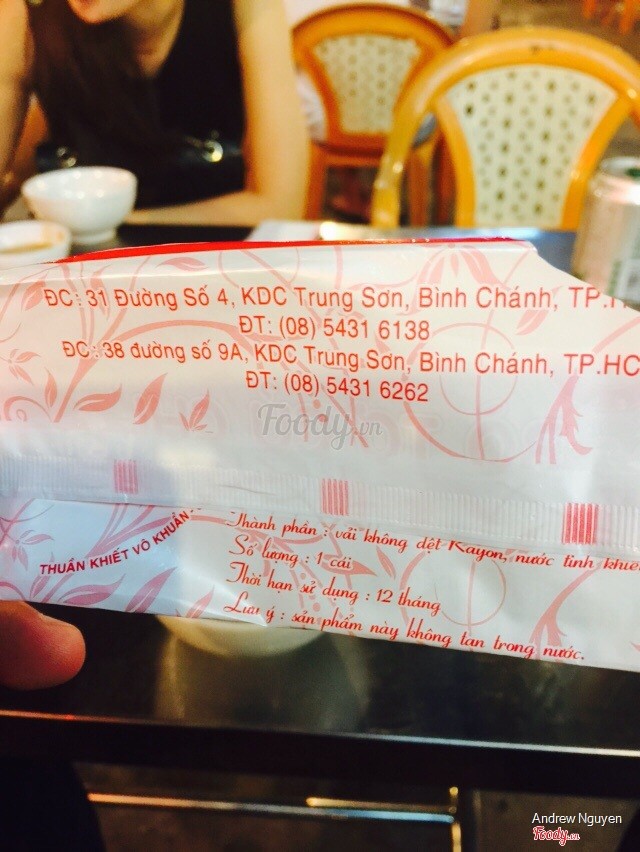 ĐC: 31 Đường Số 4, KDC Trung Sơn, Bình Chánh, TP.
ĐT: (08) 5431 6138
ĐC: 38 đường số 9A, KDC Trung Sơn, Bình Chánh, TP.HC
ĐT: (08) 5431 6262
Foody.vn
THUẦN KHIẾT VÔ KHUẨN
Thành phần : vải không dệt Rayon, nước tinh khiế
Số lượng : 1 cái
Thời hạn sử dụng : 12 tháng
Lưu ý : sản phẩm này không tan trong nước.
Andrew Nguyen
Foody.vn